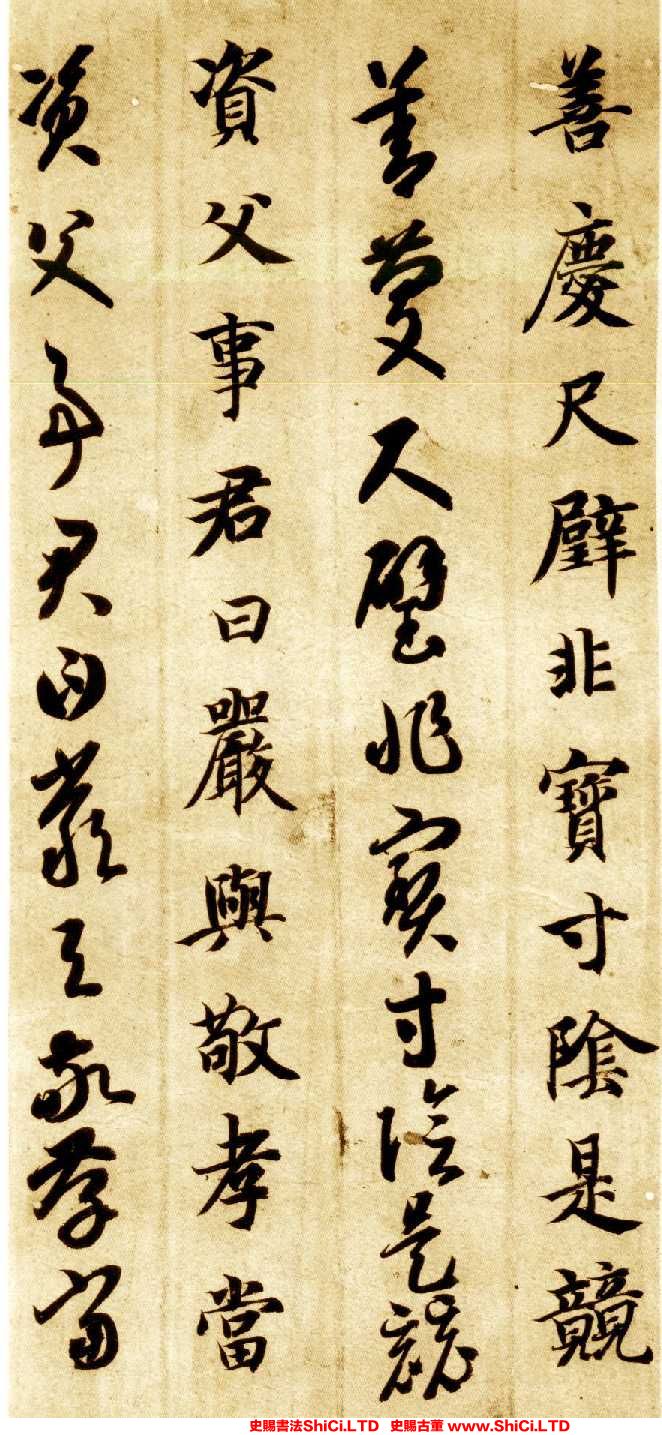 善慶尺璧非寶寸陰是競
善慶尺璧非寶寸陰是競
資父事君曰嚴與敬孝當
資父事君曰嚴与敬孝當
史賜書法ShiCi.LTD 史賜古董 www.ShiCi.LTD